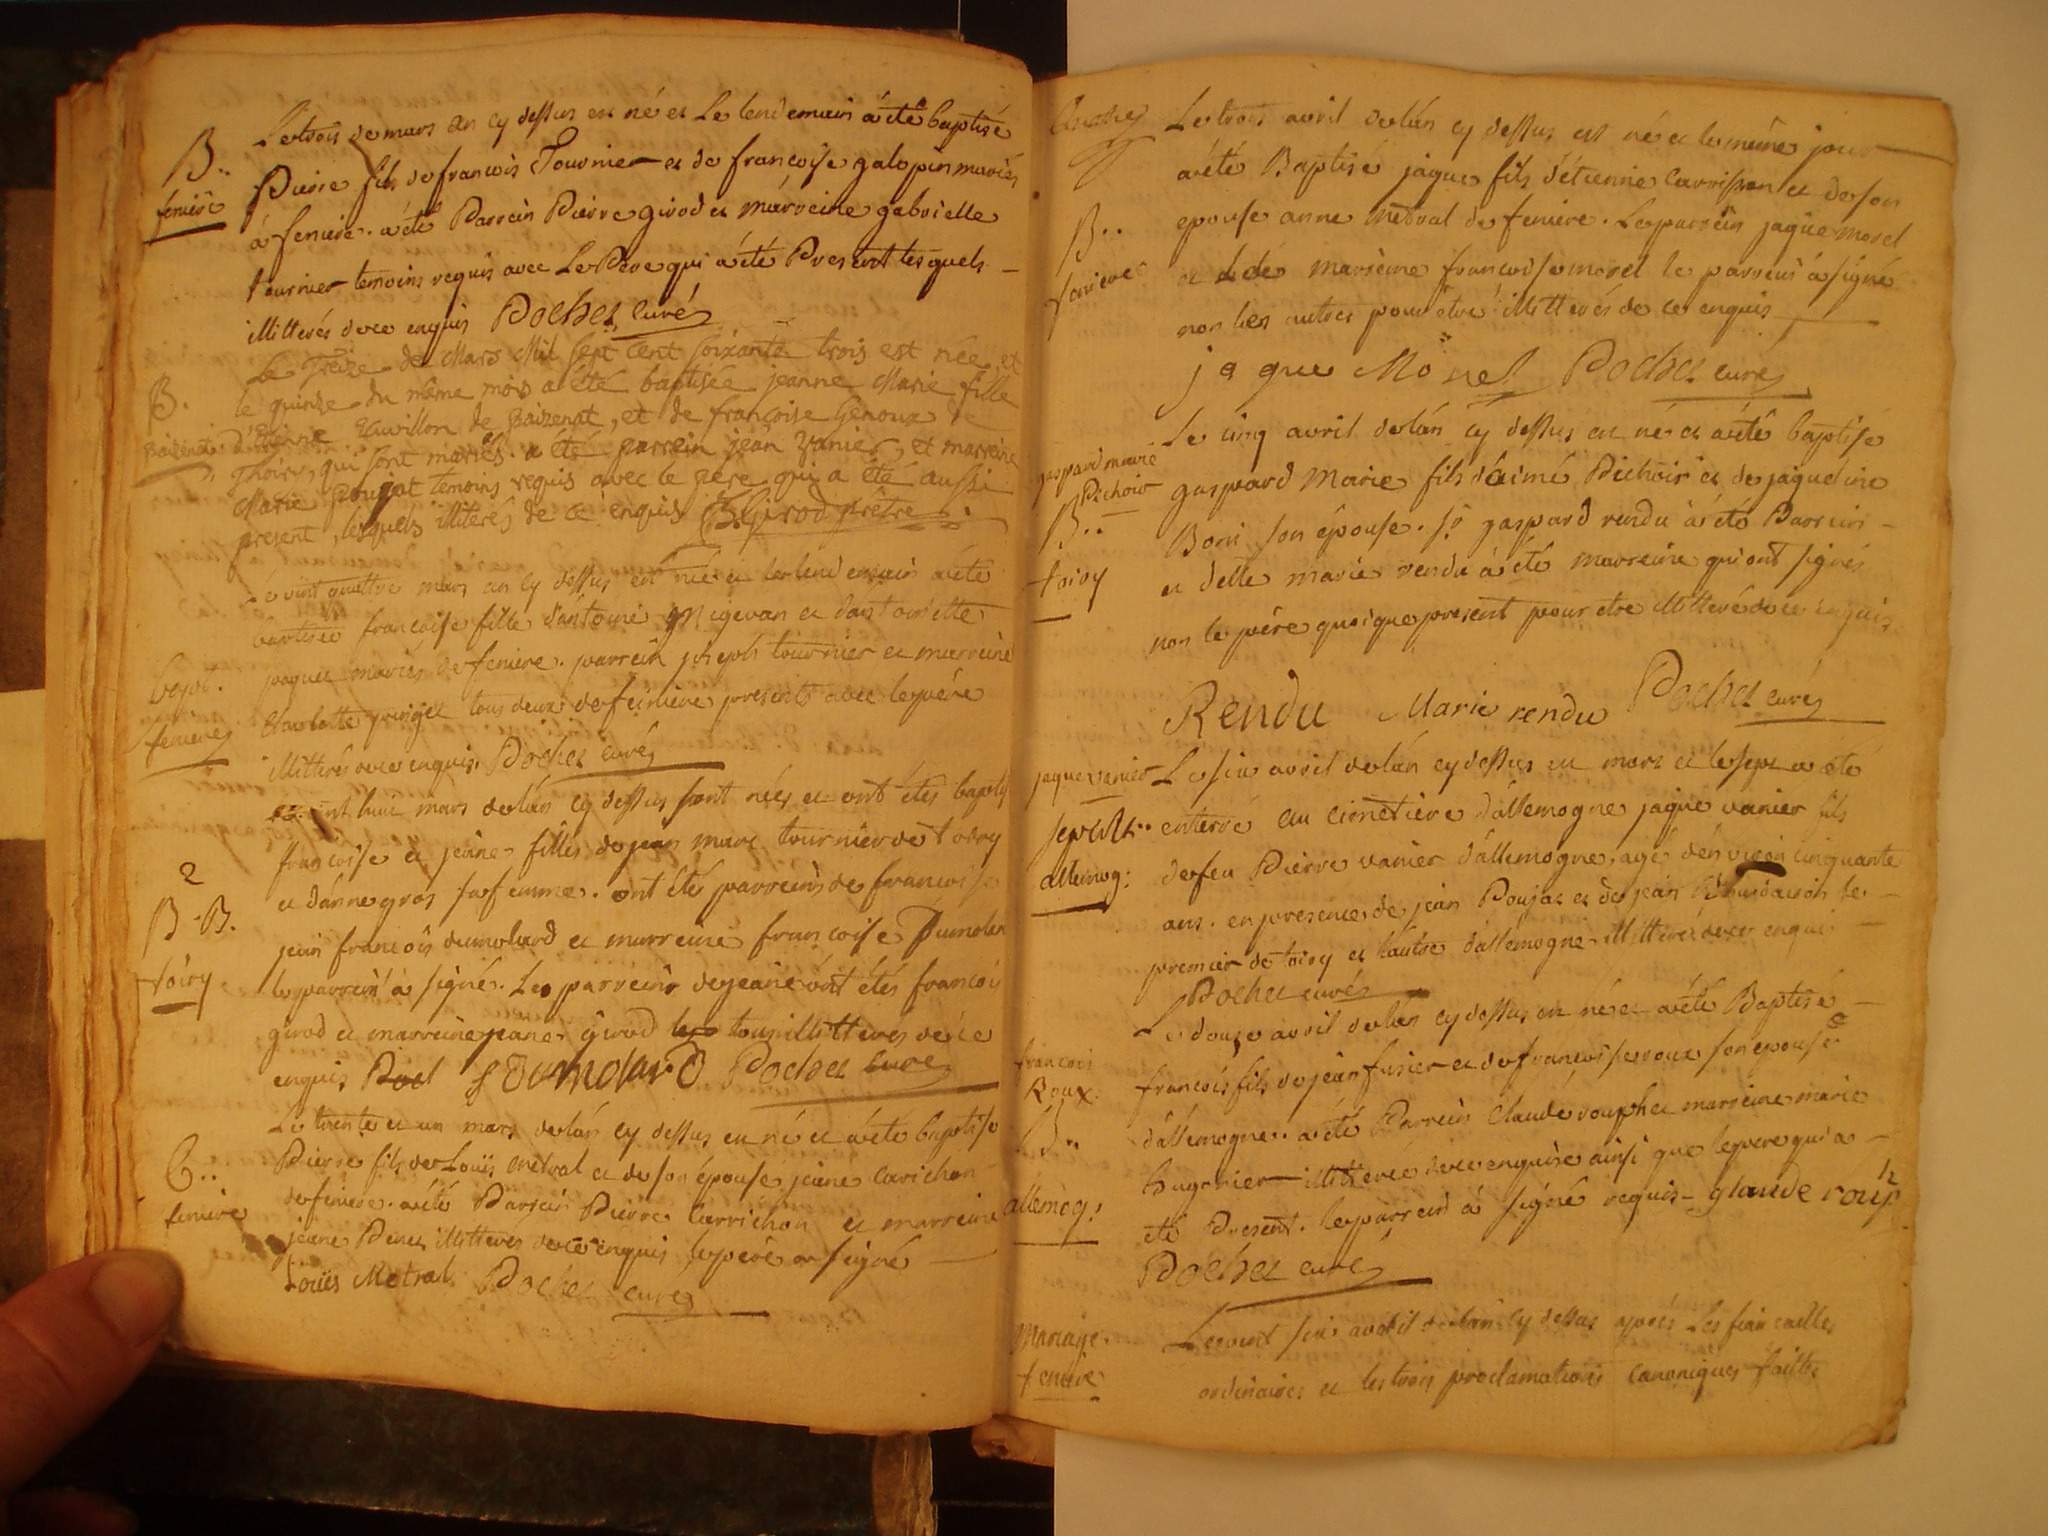 Le trois de mars an cy dessus est né et le lendemain a été baptisé
B..
feniére
Pierre fils de francois Tournier et de francoise galopin mariés
á feniere. a été Parrein Pierre girod et marreine gabrielle
tournier temoins requis avec Le Pere qui a été Present lesquels
illitterés de ce enquis Pochet curé
Le Treize de Mars Mil sept cent soixante trois est née, et
le quinze du même mois a été baptisée jeanne Marie fille
B.
d'Etienne de Baizenat, et de françoise Genoux de
Baizenat
Thoiry, qui sont mariés. a été parrein jean Vanier, et marreine
Marie Pougat temoins requis avec le père qui a été aussi
present, lesquels illiterés de ce enquis Girod prêtre
Le vint quattre mars an cy dessus est née et le lendemain a été
baptisée francoise fille d'antoine Migevan et d'antoinette
paquet mariés de feniere. parrein joseph tournier et marreine
bapt.
Charlotte tous deux de feiniere presents avec le père
feniere
illitterés de ce enquis. Pochet curé
vint huit mars de lán cy dessus sont nées et ont étés baptis
francoise et jeáne filles de jean marc tournier de toiry
2
B. B.
et d'anne gros sa femme. ont étés parreins de francoise
jean francois dumolard et marreine francoise Dumolar
toiry
le parrein a signé. Les parreins de jeane ont étés francois
girod et marreine jeane girod tous illitteres de ce
enquis f Dumolard Pochet curé
Le trente et un mars de lán cy dessus est né et a été baptisé
B..
Pierre fils de Louis metral et de son épouse jeane Carichon
feniere
de feniere. a été Parrein Pierre Carrichon et marreine
jeane illitteres de ce enquis le pere a signé
Louïs Metral Pochet curé
Le trois avril de lán cy dessus est né et le même jour
a été Baptisé jaque fils d'étienne Carrisson et de son
B..
epouse anne Metral de feniere. Le parrein jaque morel
feniere
et marseine francoise morel le parrein a signé
non les autres pour être illitterés de ce enquis
jaque Morel Pochet curé
Le cinq avril de lán cy dessus est né et a été baptisé
gaspard marie
Pichoir
gaspard Marie fils d'aimé Pichoir et de jaqueline
B..
Boni son épouse. sr gaspard rendu a été Parrein
toiry
et delle marie rendu a été marreine qui ont signés
non le père quoique present pour etre illitteré de ce enquis
Rendu Marie rendu Pochet curé
jaque vanier
Le six avril de lán cy dessus est mort et le sept a été
sepult..
enterré au cimetiere d'allemogne jaque vanier fils
allemog:
de feu Pierre vanier d'allemogne, agé d'environ cinquante
ans. en presence de jean Poujat et de jean le
premier de toiry et l'autre d'allemogne illitterés de ce enquis
Pochet curé
Le douze avril de lán cy dessus est né et a été Baptisé
francois
Roux.
francois fils de jean fusier et de francoise roux son epouse
B..
d'allemogne. a été Parrein Claude rouph et marreine marie
hugonier illitterée de ce enquise ainsi que le pere qui a
allemog:
eté Present. le parrein a signé requis glaude rouph
Pochet curé
Mariage.
Le vint six avril de lán cy dessus après Les fiancailles
feniere
ordinaires et les trois proclamations canoniques faittes